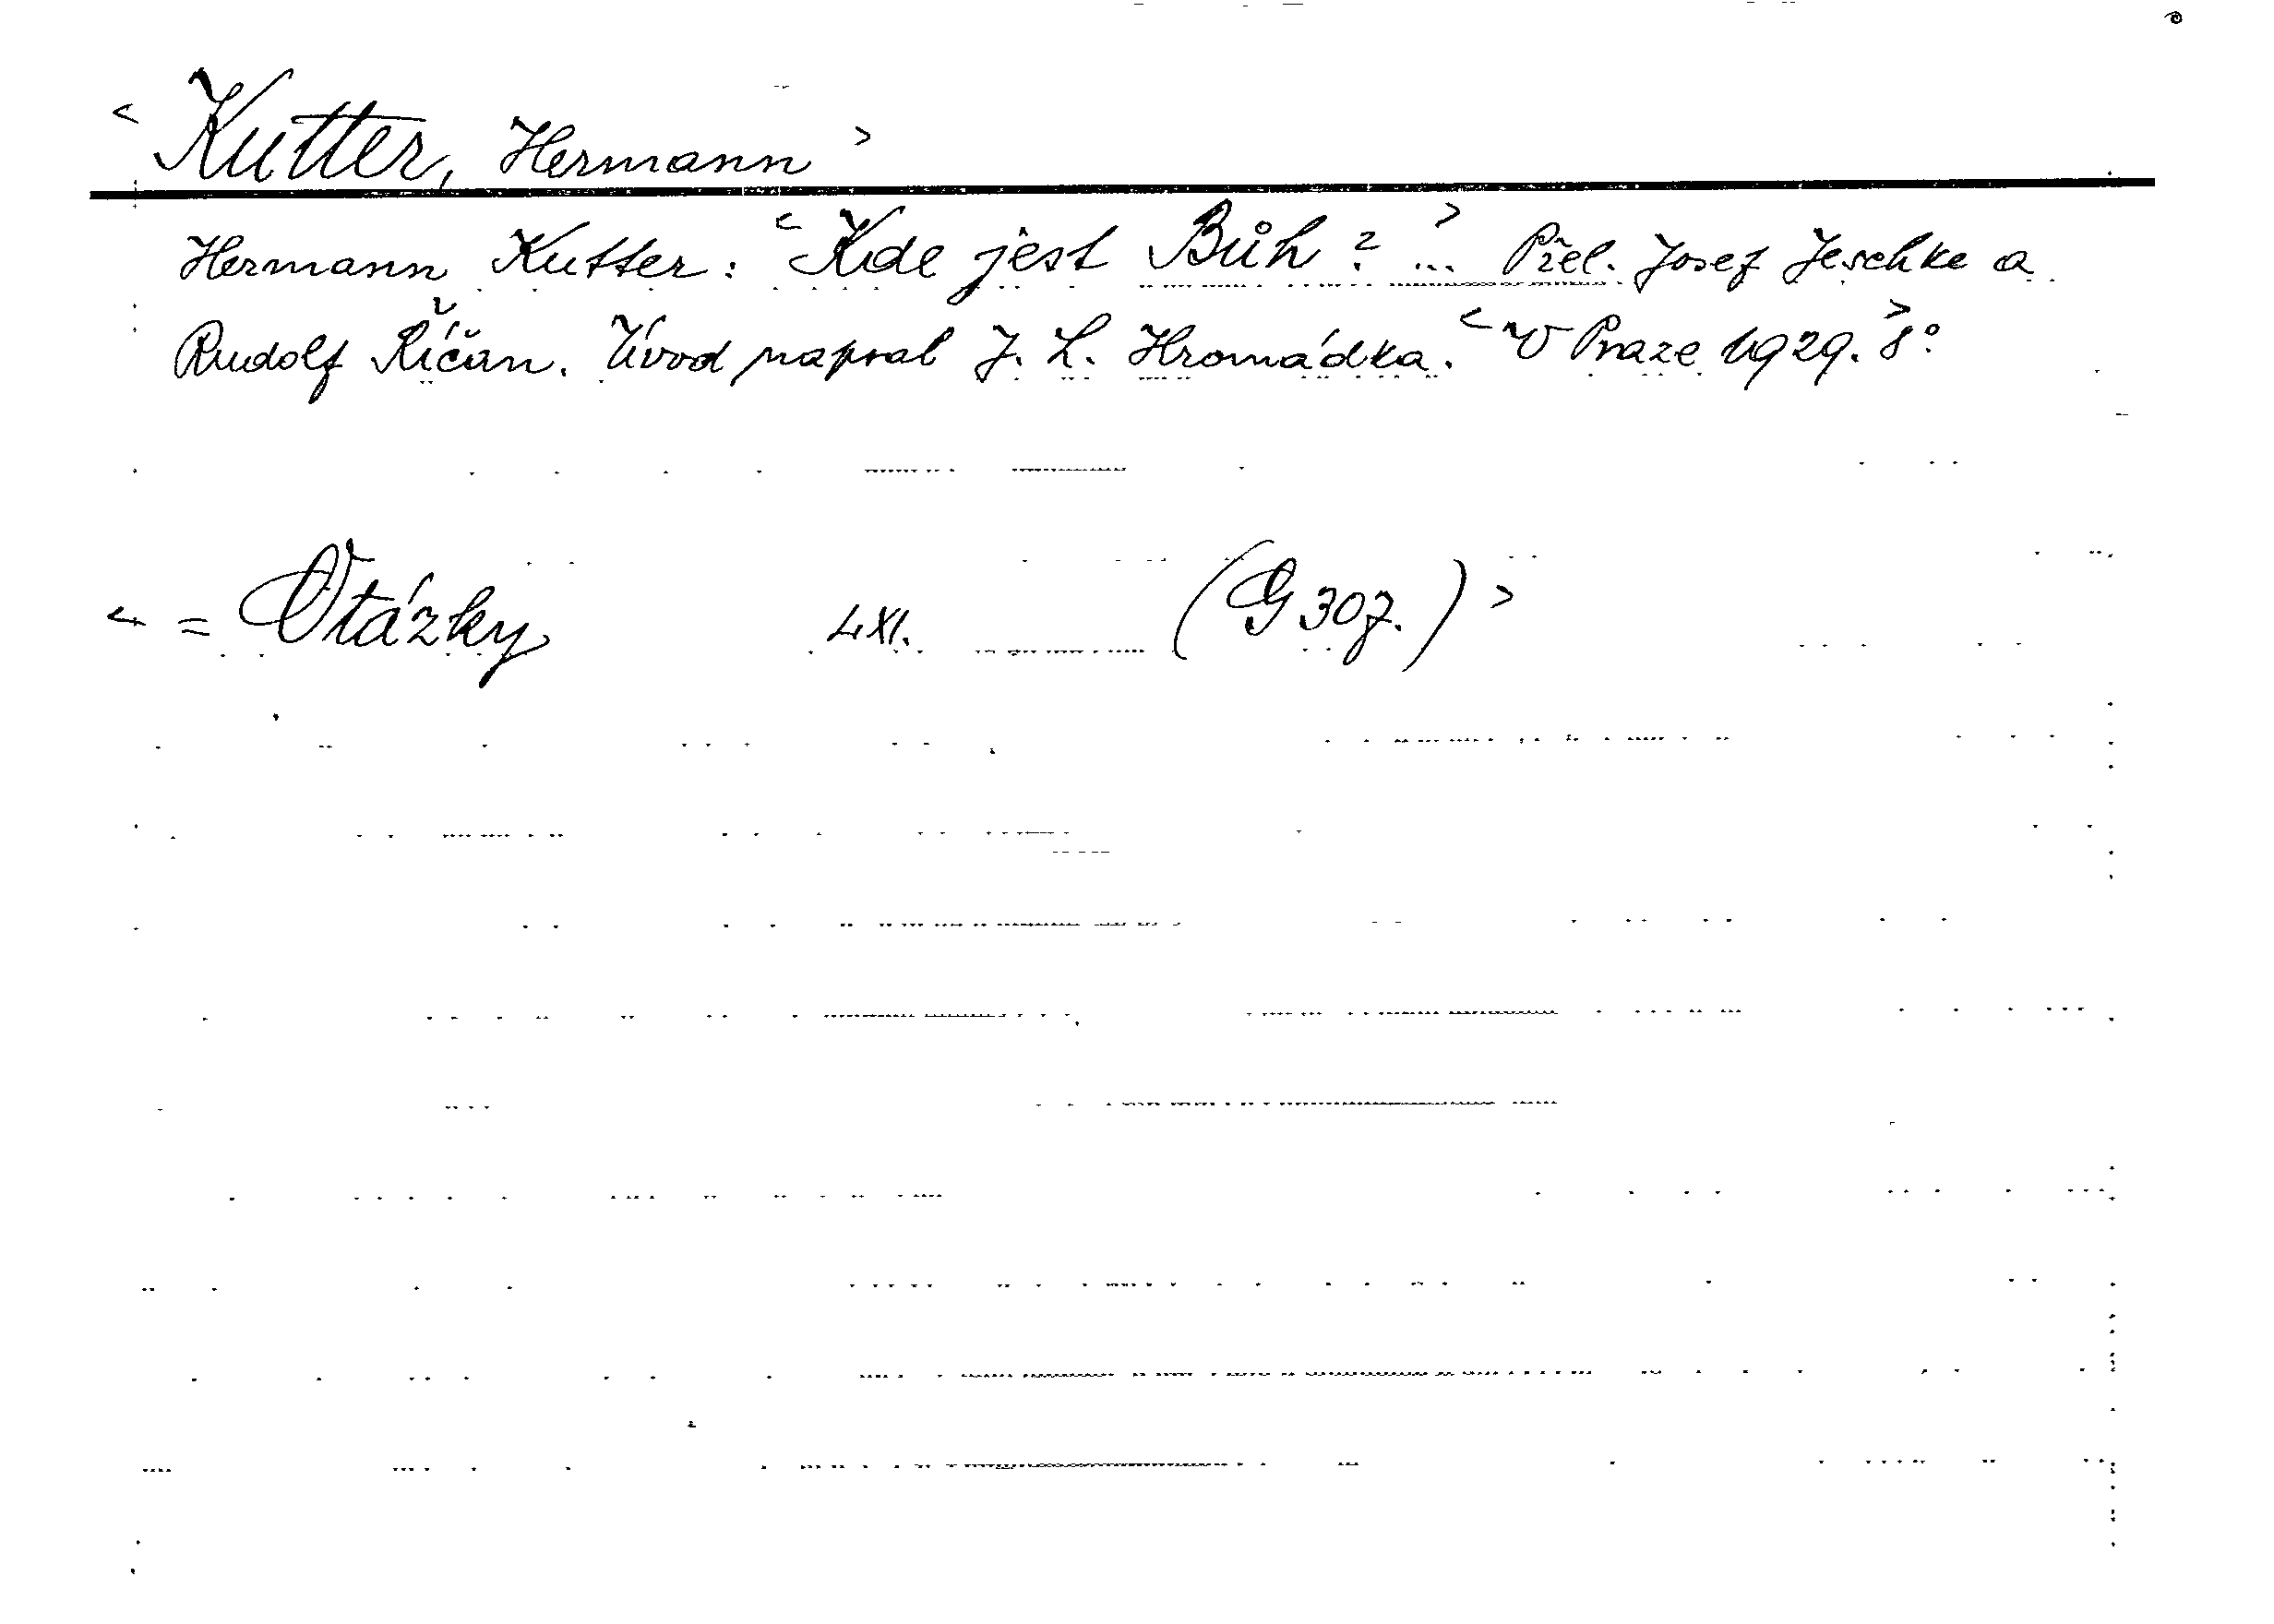 < Kutter, Hermann >
Hermann Kutter: < Kde jest Bůh? > ... Přel. Josef Jeschke a
Rudolf Říčan. Úvod napsal J. L. Hromádka. < V Praze 1929. > 8°
< = Otázky LXI. (G 307.) >